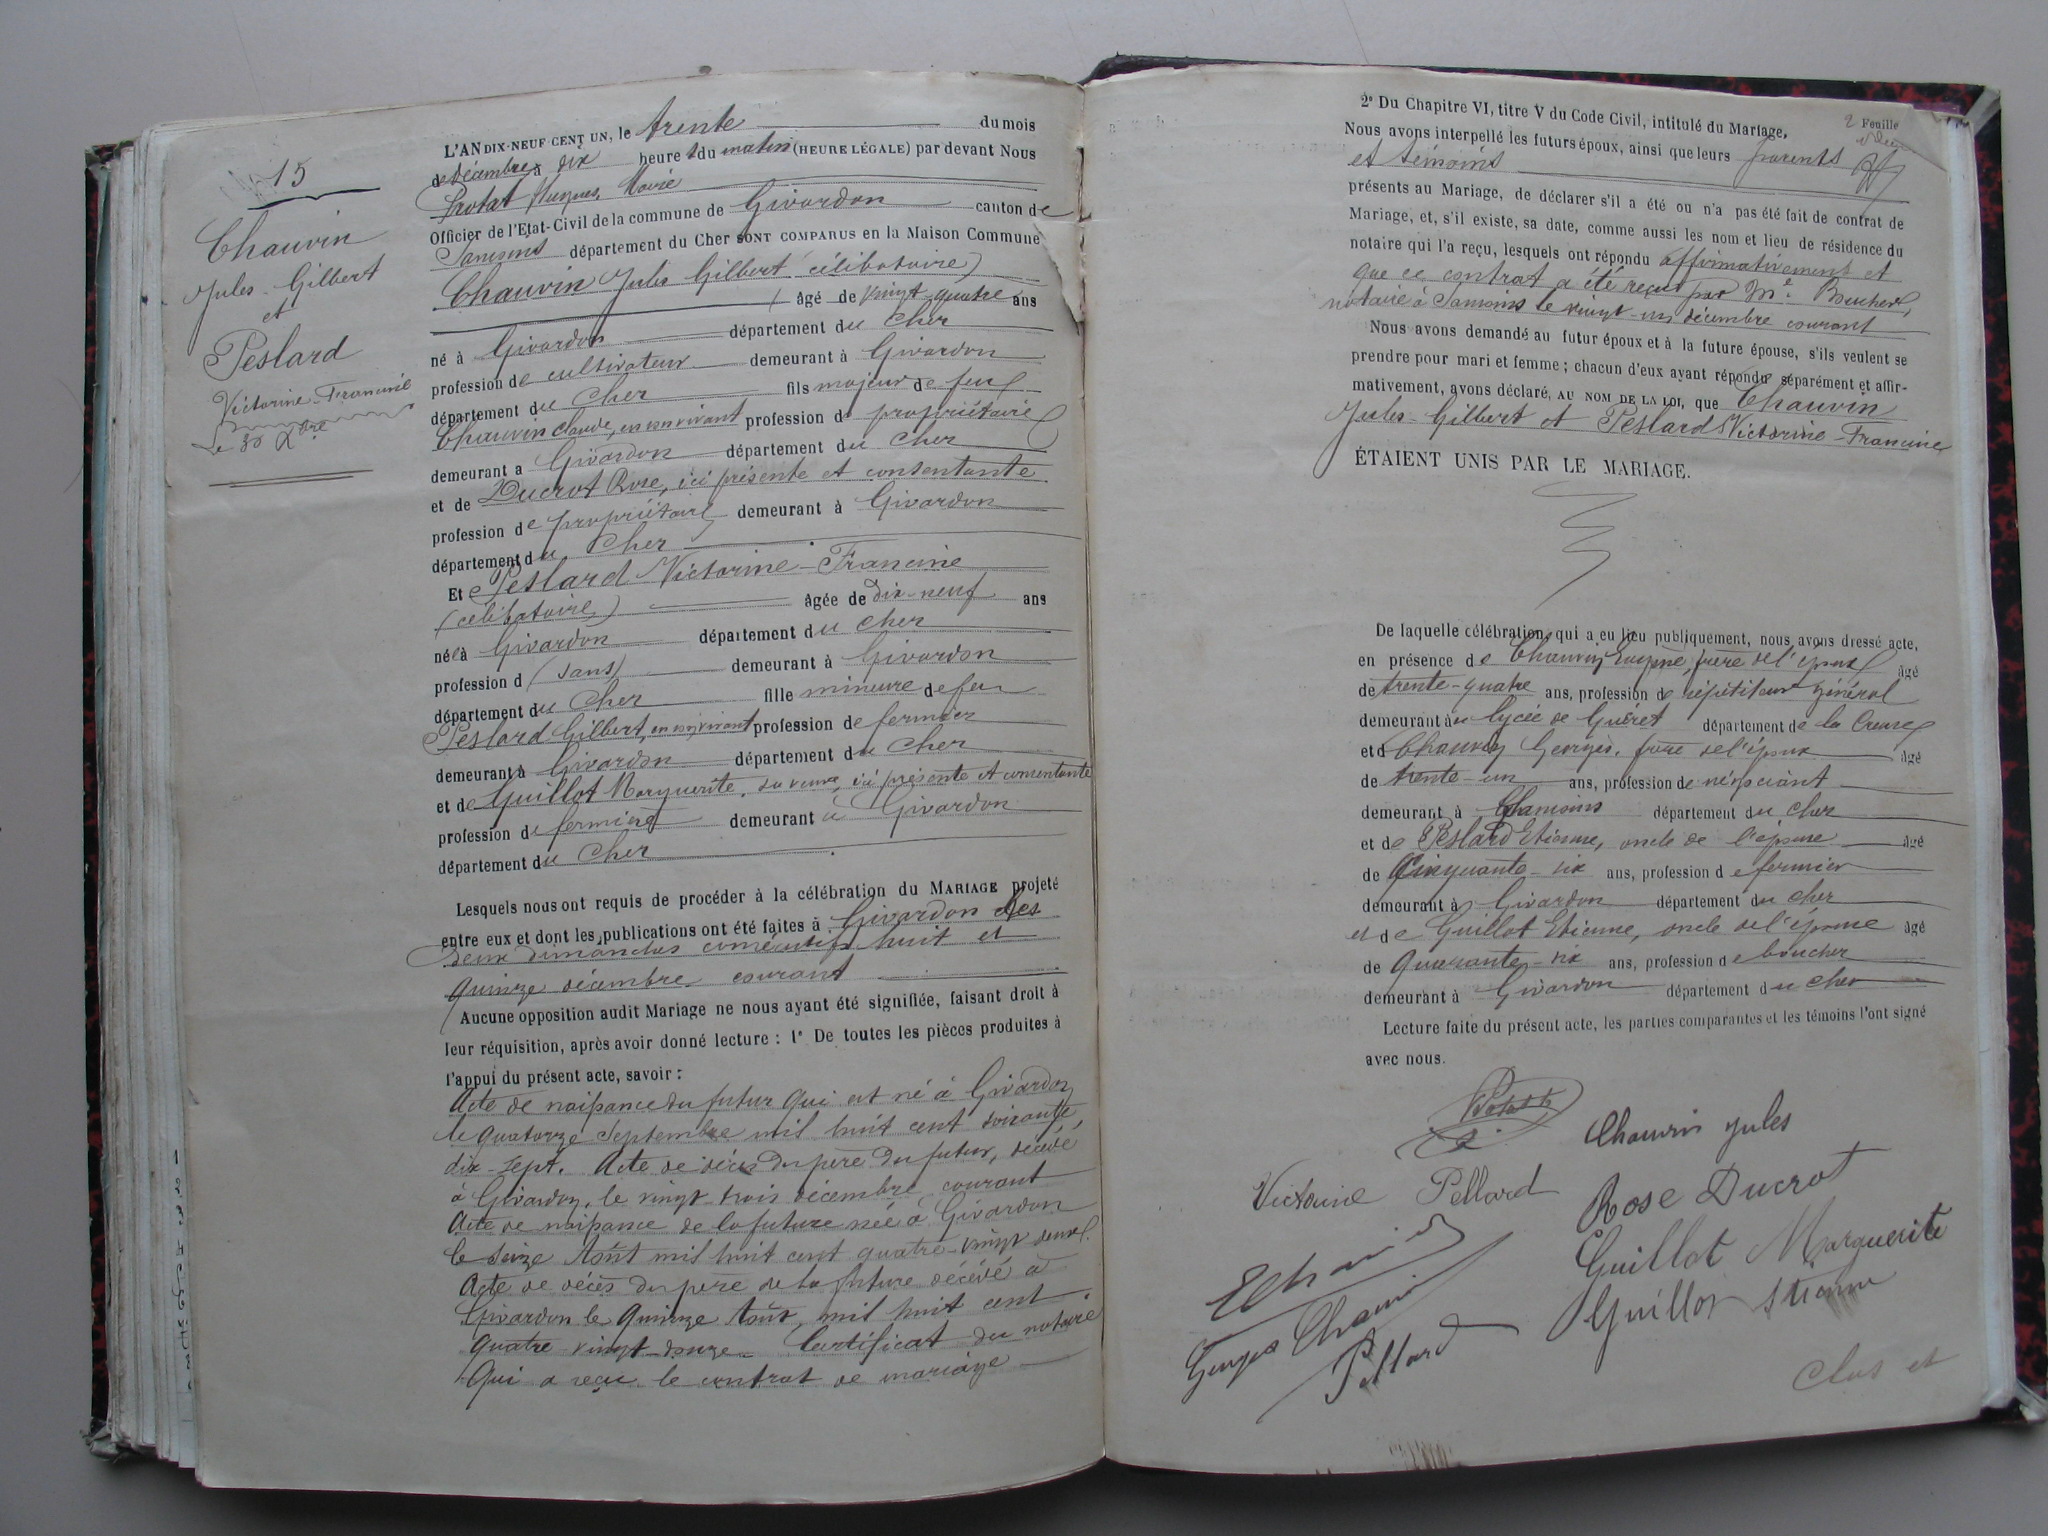 15
Chauvin
Jules-Gilbert
et
Peslard
Victorine-Francine
le 30 Xbre
L'AN DIX-NEUF CENT UN, le trente du mois
de décembre à dix heures du matin (HEURE LÉGALE) par devant Nous
Protat Maire
Officier de l'Etat-Civil de la commune de Givardon canton de
Sancoins département du Cher SONT COMPARUS en la Maison Commune
Chauvin Jules Gilbert (célibataire)
âgé de vingt-quatre ans
né à Givardon département du Cher
profession de cultivateur demeurant à Givardon
département du Cher fils majeur de feu
Chauvin Claude, en son vivant profession de propriétaire
demeurant à Givardon département du Cher
et de Ducrot Rose, ici présente et consentante
profession de propriétaire demeurant à Givardon
département du Cher
Et Peslard Victorine-Francine
(célibataire) âgée de dix-neuf ans
née à Givardon département du Cher
profession d (sans) demeurant à Givardon
département du Cher fille mineure de feu
Peslard Gilbert, en son vivant profession de fermier
demeurant à Givardon département du Cher
et de Guillot Marguerite, sa veuve, ici présente et consentante
profession de fermière demeurant à Givardon
département du Cher
Lesquels nous ont requis de procéder à la célébration du MARIAGE projeté
entre eux et dont les publications ont été faites à Givardon les
deux dimanches consécutifs huit et
quinze décembre courant
Aucune opposition audit Mariage ne nous ayant été signifiée, faisant droit à
leur réquisition, après avoir donné lecture : 1° De toutes les pièces produites à
l'appui du présent acte, savoir :
Acte de naissance du futur qui est né à Givardon
le quatorze septembre mil huit cent soixante
dix-sept. Acte de décès du père du futur, décédé
à Givardon, le vingt trois décembre courant
Acte de naissance de la future née à Givardon
le seize Août mil huit cent quatre-vingt deux.
Acte de décès du père de la future décédé à
Givardon le quinze Août, mil huit cent
quatre vingt-douze. Certificat du notaire
qui a reçu le contrat de mariage
2 Feuille
2° Du Chapitre VI, titre V du Code Civil, intitulé du Mariage,
Nous avons interpellé les futurs époux, ainsi que leurs parents
et témoins
présents au Mariage, de déclarer s'il a été ou n'a pas été fait de contrat de
Mariage, et, s'il existe, sa date, comme aussi les nom et lieu de résidence du
notaire qui l'a reçu, lesquels ont répondu affirmativement et
que ce contrat a été reçu par Me
notaire à Sancoins le vingt-un décembre courant
Nous avons demandé au futur époux et à la future épouse, s'ils veulent se
prendre pour mari et femme ; chacun d'eux ayant répondu séparément et affir-
mativement, avons déclaré, AU NOM DE LA LOI, que Chauvin
Jules-Gilbert et Peslard Victorine-Francine
ÉTAIENT UNIS PAR LE MARIAGE.
De laquelle célébration, qui a eu lieu publiquement, nous avons dressé acte,
en présence de Chauvin Eugène, frère de l'époux âgé
de trente-quatre ans, profession de répétiteur général
demeurant au lycée de Guéret département de la Creuse
et d Chauvin Georges, frère de l'époux âgé
de trente-un ans, profession de négociant
demeurant à Sancoins département du Cher
et de Peslard Etienne, oncle de l'épouse âgé
de Cinquante-six ans, profession de fermier
demeurant à Givardon département du Cher
et de Guillot Etienne, oncle de l'épouse âgé
de Quarante-six ans, profession de boucher
demeurant à Givardon département du Cher
Lecture faite du présent acte, les parties comparantes et les témoins l'ont signé
avec nous.
Protat
Chauvin Jules
Victorine Pellard
Rose Ducrot
Guillot Marguerite
EChauvin
Guillot Etienne
Georges Chauvin
Pellard
Clos et